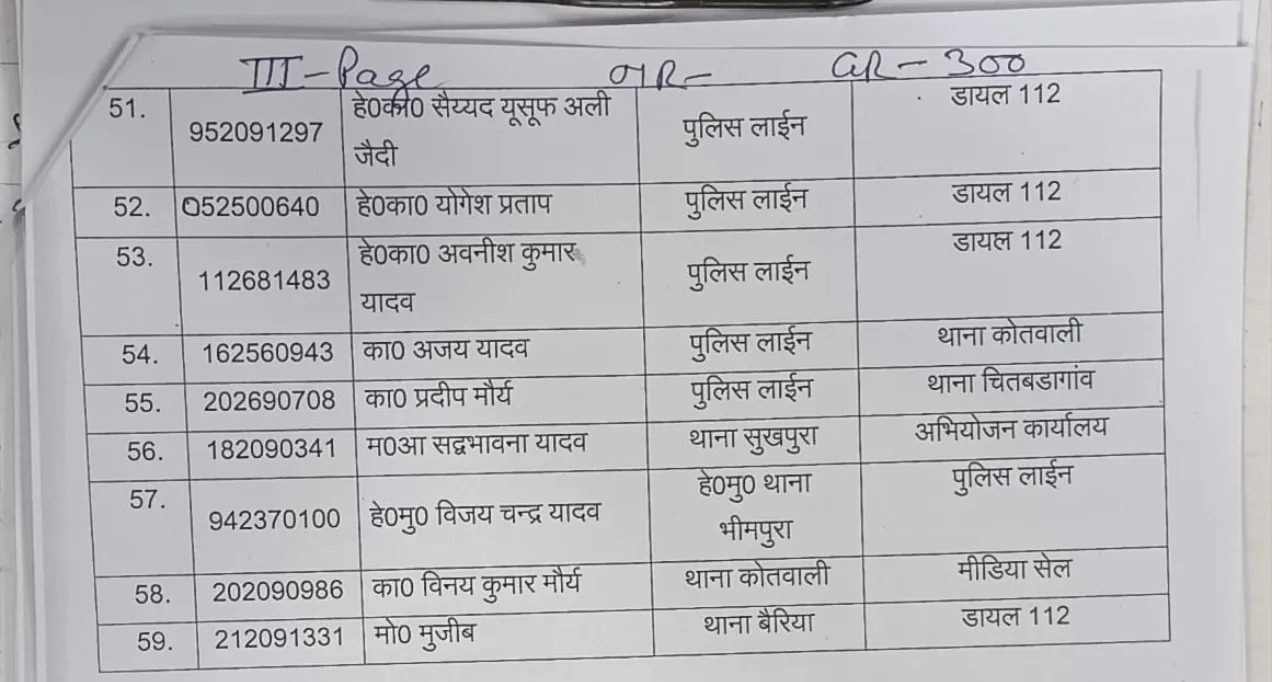 III - Page OR - GR - 300
51. 952091297 हे0का0 सैय्यद यूसूफ अली जैदी पुलिस लाईन डायल 112
52. 052500640 हे0का0 योगेश प्रताप पुलिस लाईन डायल 112
53. 112681483 हे0का0 अवनीश कुमार यादव पुलिस लाईन डायल 112
54. 162560943 का0 अजय यादव पुलिस लाईन थाना कोतवाली
55. 202690708 का0 प्रदीप मौर्य पुलिस लाईन थाना चितबडागांव
56. 182090341 म0आ सद्वभावना यादव थाना सुखपुरा अभियोजन कार्यालय
57. 942370100 हे0मु0 विजय चन्द्र यादव हे0मु0 थाना भीमपुरा पुलिस लाईन
58. 202090986 का0 विनय कुमार मौर्य थाना कोतवाली मीडिया सेल
59. 212091331 मो0 मुजीब थाना बैरिया डायल 112